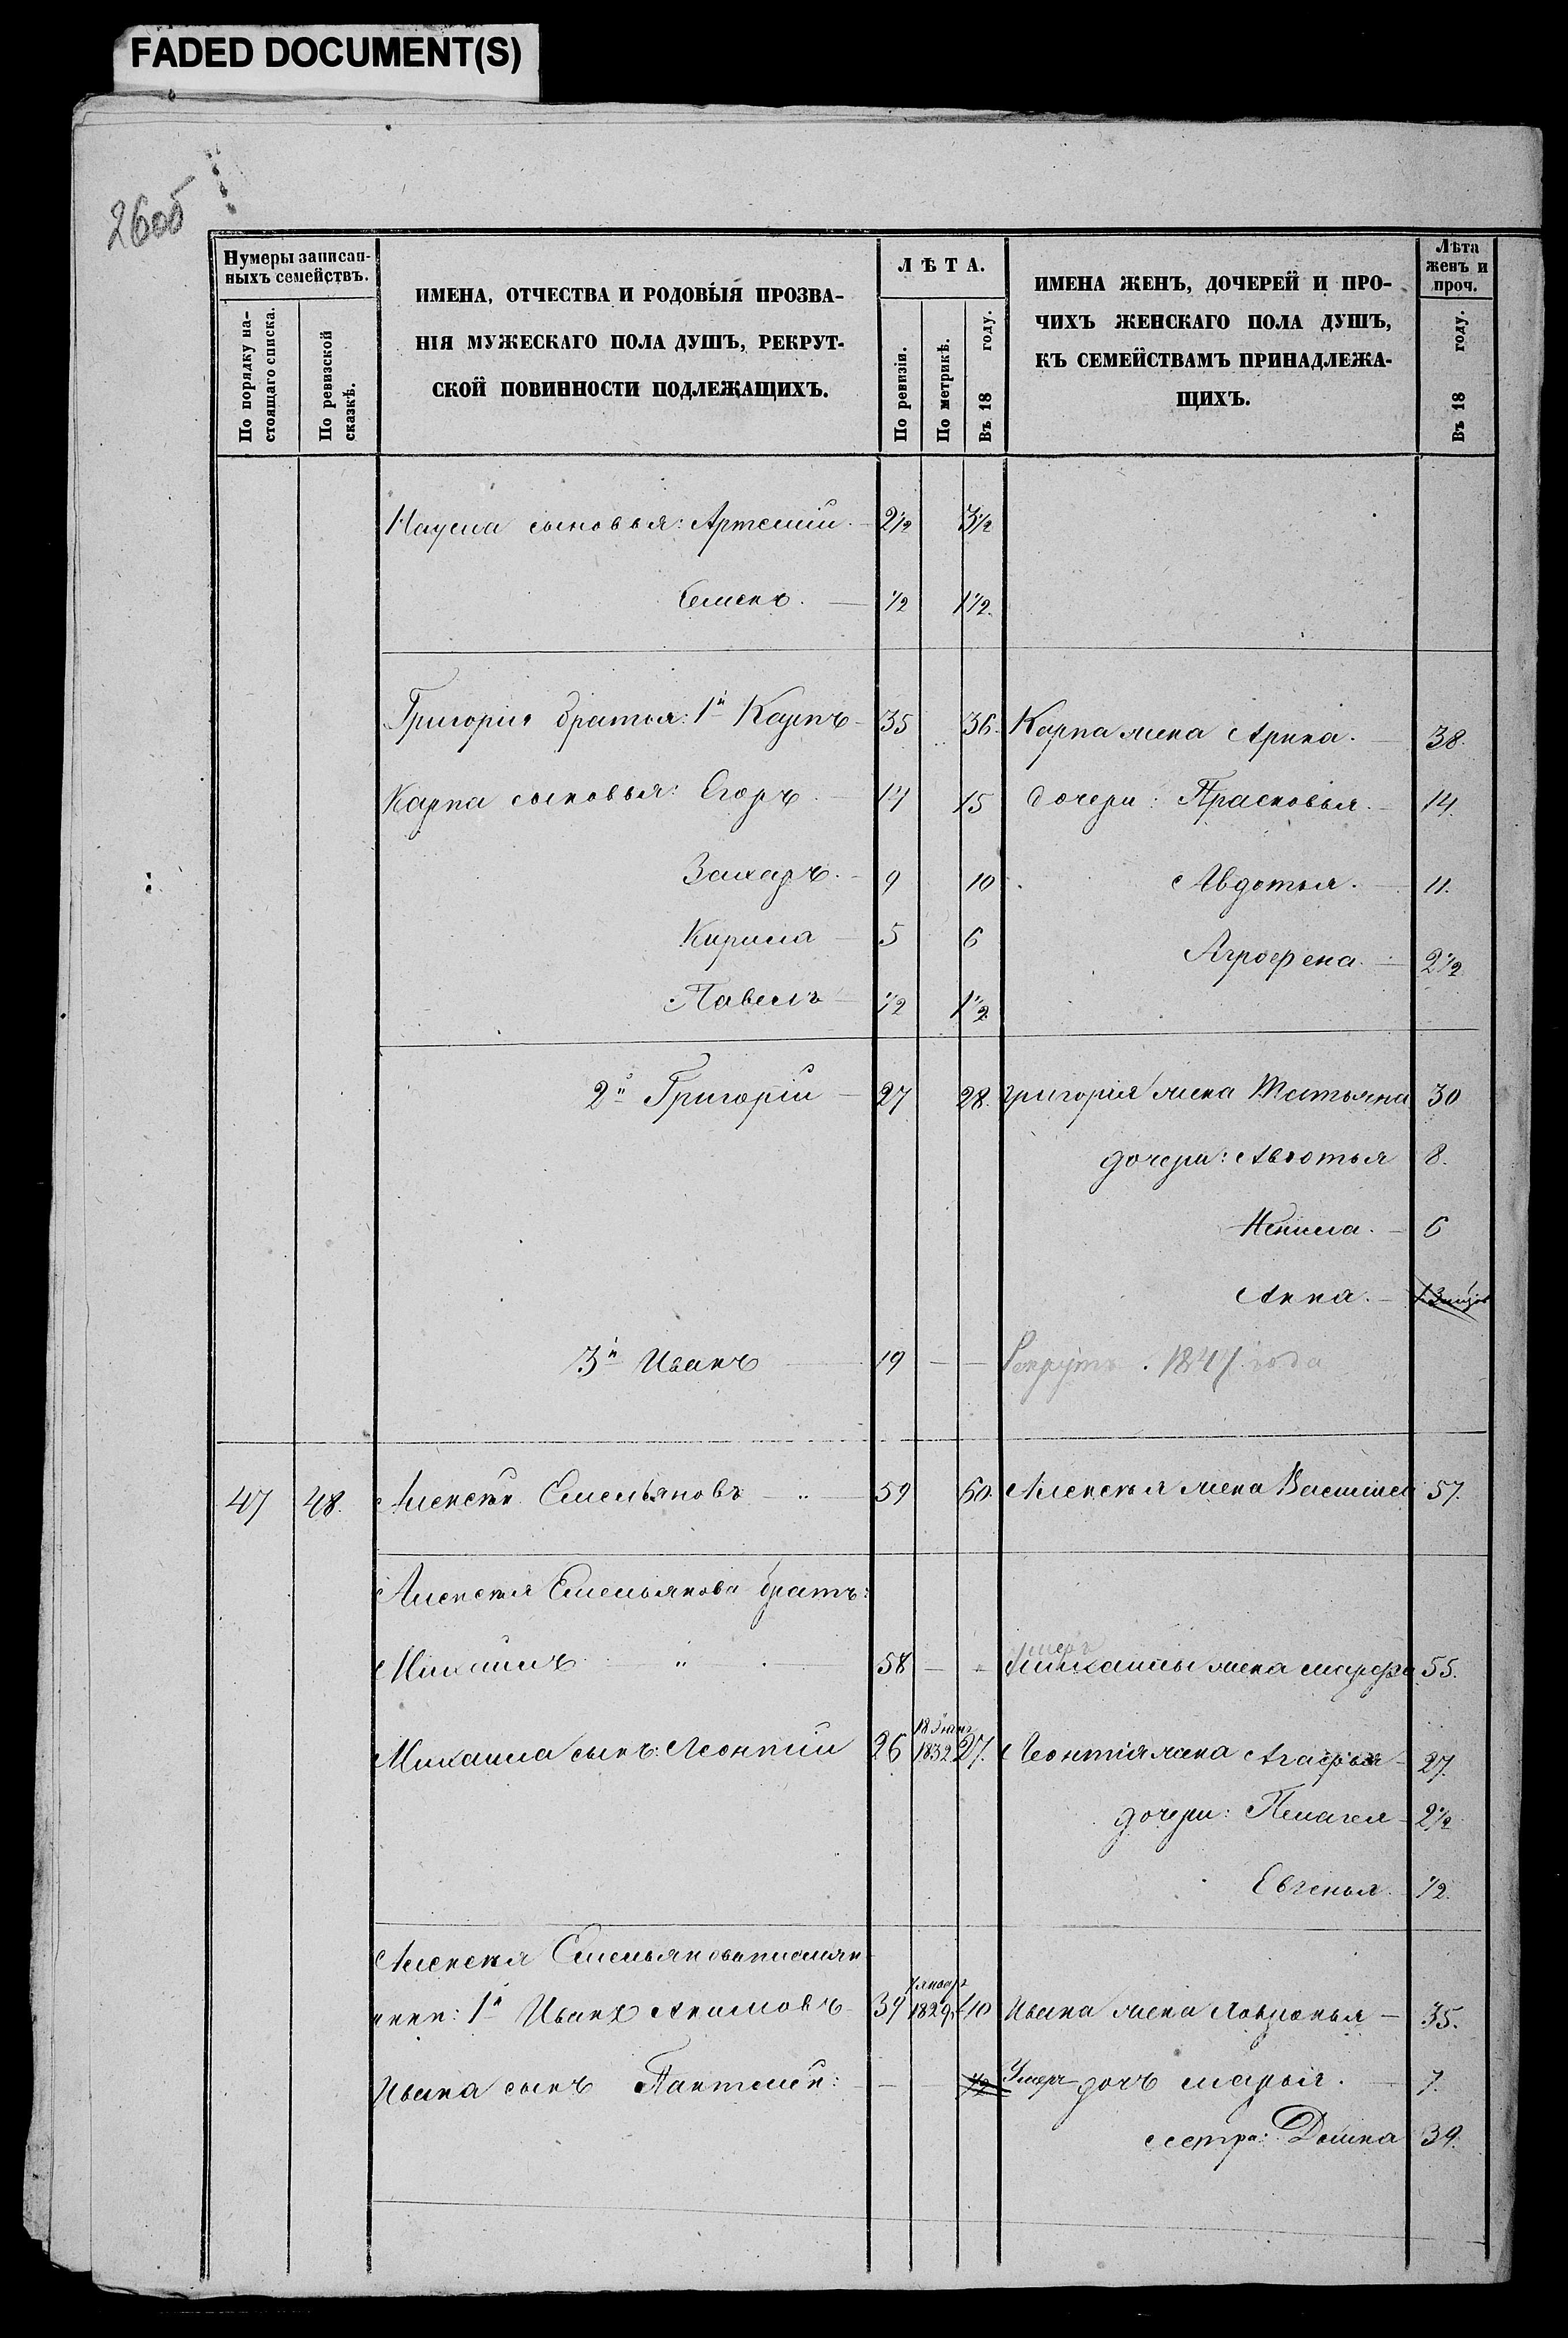 FADED DOCUMENT(S)
26об
Нумеры записан-
ныхъ семействъ.
По порядку на-
стоящаго списка.
По ревизской
сказкѣ.
ИМЕНА, ОТЧЕСТВА И РОДОВЫЯ ПРОЗВА-
НІЯ МУЖЕСКАГО ПОЛА ДУШЪ, РЕКРУТ-
СКОЙ ПОВИННОСТИ ПОДЛЕЖАЩИХЪ.
ЛѢТА.
По ревизіи.
По метрикѣ.
Въ 18 году.
ИМЕНА ЖЕНЪ, ДОЧЕРЕЙ И ПРО-
ЧИХЪ ЖЕНСКАГО ПОЛА ДУШЪ,
КЪ СЕМЕЙСТВАМЪ ПРИНАДЛЕЖА-
ЩИХЪ.
Лѣта
женъ и
проч.
Въ 18 году.
Наума сыновья: Артемій 2½ 3½
Семенъ. ½ 1½.
Григорія братья: 1й Карпъ 35 36. Карпа жена Арина. 38.
Карпа сыновья: Егоръ 14 15 дочери: Прасковья. 14.
Захаръ. 9 10 Авдотья. 11.
Кирила 5 6 Агрофена. 2½
Павелъ ½ 1½
2й Григорій 27 28. Григорія жена Татьяна 30
дочери: Авдотья 8.
Ненила. 6
Анна.
3й Иванъ 19 — — Рекрутъ. 1847 года
47 48. Алексѣй Емельяновъ 59 60. Алексѣя жена Василиса 57.
Алексѣя Емельянова братъ:
Михаилъ 58 — умеръ Михаилы жена Марфа 55.
Михаила сынъ: Леонтій 26 1832 27. Леонтія жена Агафья 27.
дочери: Пелагея 2½
Евгенья. ½.
Алексѣя Емельянова племян-
ники: 1й Иванъ Акимовъ 39 7 январ 1829. 40 Ивана жена Февронья 35.
Ивана сынъ Пантелей: — — ½ Умеръ дочь Марья. 7.
сестра: Домна 39.